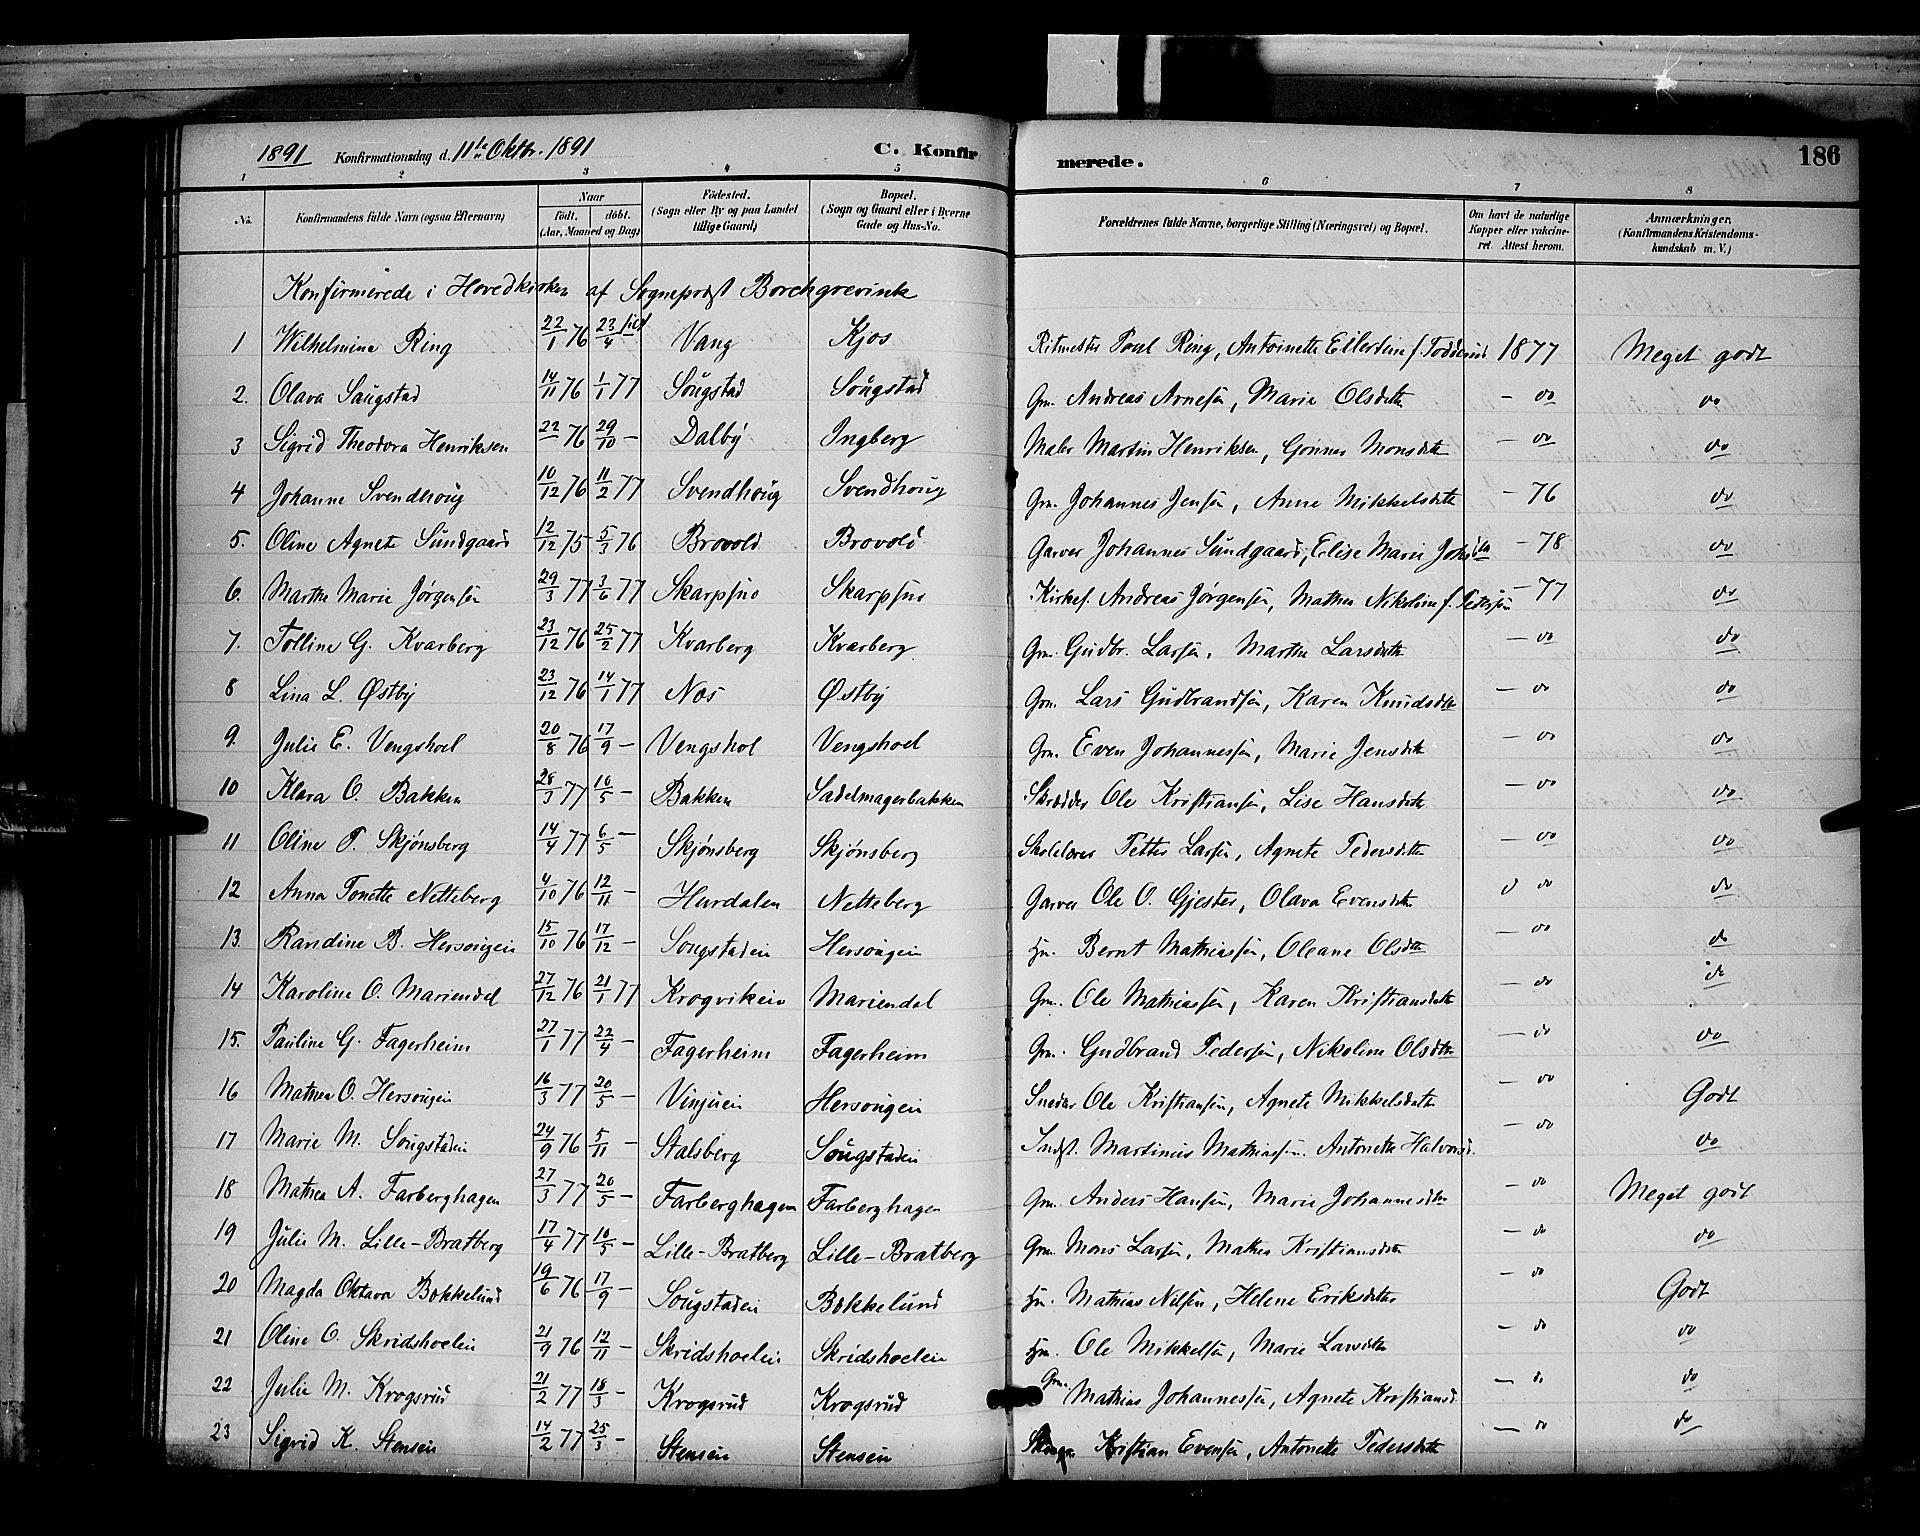 1891 Konfirmationsdag d. 11te Oktbr. 1891 C. Konfir merede. 186
1 2 3 4 5 6 7 8
No. Konfirmandens fulde Navn (ogsaa Efternavn) Naar født. døbt. (Aar, Maaned og Dag) Fødested. (Sogn eller By og paa Landet tillige Gaard) Bopæl. (Sogn og Gaard eller i Byerne Gade og Hus-No. Forældrenes fulde Navne, borgerlige Stilling (Næringsvei) og Bopæl. Om havt de naturlige Kopper eller vakcineret. Attest herom. Anmærkninger. (Konfirmandens Kristendomskundskab m. V.)
Konfirmerede i Hovedkirken af Sogneprest Borchgrevink
1 Wilhelmine Ring 22/1 76 23/4 Vang Kjos Ritmester Poul Ring, Antoinette Ellerdine f. Todderud 1877 Meget godt
2. Olava Saugstad 14/11 76 1/1 77 Sougstad Sougstad Gm. Andreas Arnesen, Marie Olsdatter - do do
3 Sigrid Theodora Henriksen 22/ 76 29/10 - Dalby Ingberg Maler Martin Henriksen, Gunner Monsdttr - do do
4 Johanne Svendhoug 10/12 76 11/2 77 Svendhoug Svendhoug Gm. Johannes Jensen, Anne Mikkelsdttr - 76 do
5. Oline Agnete Sundgaard 12/12 75 5/3 76 Brovold Brovold Garver Johannes Sundgaard, Elise Marie Johsdtr - 78 do
6. Marthe Marie Jørgensen 29/3 77 3/6 77 Skarpsno Skarpsno Kirkes. Andreas Jørgensen, Mathea Nikoline f. Pettersen - 77 do
7. Tolline G. Kvarberg 23/12 76 25/2 77 Kvarberg Kvarberg Gm. Gudbr. Larsen, Marthe Larsdatter - do do
8 Lina L. Østby 23/12 76 14/1 77 Nes Østby Gm. Lars Gudbrandsen, Karen Knudsdtr - do do
9. Julie E. Vengshoel 20/8 76 17/9 - Vengshol Vengshoel Gm. Even Johannessen, Marie Jensdtr - do do
10 Klara O. Bakken 28/3 77 10/5 - Bakken Sadelmagerbakken Skrædder Ole Kristiansen, Lise Hansdatter - do do
11 Oline P. Skjønsberg 14/4 77 6/5 - Skjønsberg Skjønsberg Skolelærer Petter Larsen, Agnete Pedersdatter - do do
12 Anna Tonette Netteberg 4/10 76 12/11 - Hurdalen Netteberg Garver Ole O. Gjester, Olava Evensdatter do do
13. Randine B. Hersougen 15/10 76 17/12 - Sougstaden Hersougen Hm. Bernt Mathiassen, Oleane Olsdttr - do do
14 Karoline O. Mariendel 27/12 76 21/1 77 Krogviken Mariendal Gm. Ole Mathiassen, Karen Kristiansdatter - do do
15. Pauline G. Fagerheim 27/1 77 22/4 - Fagerheim Fagerheim Gm. Gudbrand Pedersen, Nikoline Olsdtter - do do
16 Mathea O. Hersougen 16/3 77 20/5 - Vinjuen Hersougen Snedker Ole Kristiansen, Agnete Mikkelsdatter - do Godt
17 Marie M. Sougstaden 24/9 76 5/11 - Stalsberg Sougstaden Indst. Martinus Mathiassen. Antonette Halvorsd. - do do
18 Mathea A. Farberghagen 27/3 77 20/5 - Farberghagen Farberghagen Gm. Anders Hansen, Marie Johannesdtter - do Meget godt
19 Julie M. Lille-Bratberg 17/4 77 10/5 - Lille-Bratberg Lille-Bratberg Gm. Mons Larsen, Mathea Kristiansdatter - do do
20 Magda Oktava Bækkelund 19/6 76 17/9 - Sougstaden Bækkelund Hm. Mathias Nilsen, Helene Eriksdatter - do Godt
21 Oline O. Skridshoelen 21/9 76 12/11 - Skridshoelen Skridshoelen Hm. Ole Mikkelsen, Marie Larsdatter - do do
22 Julie M. Krogsrud 21/2 77 18/3 - Krogsrud Krogsrud Gm. Mathias Johannessen, Agnete Kristiansd. - do do
23 Sigrid K. Stensen 14/2 77 25/3 - Stensen Stensen Kristian Evensen, Antonette Pedersdatter - do do